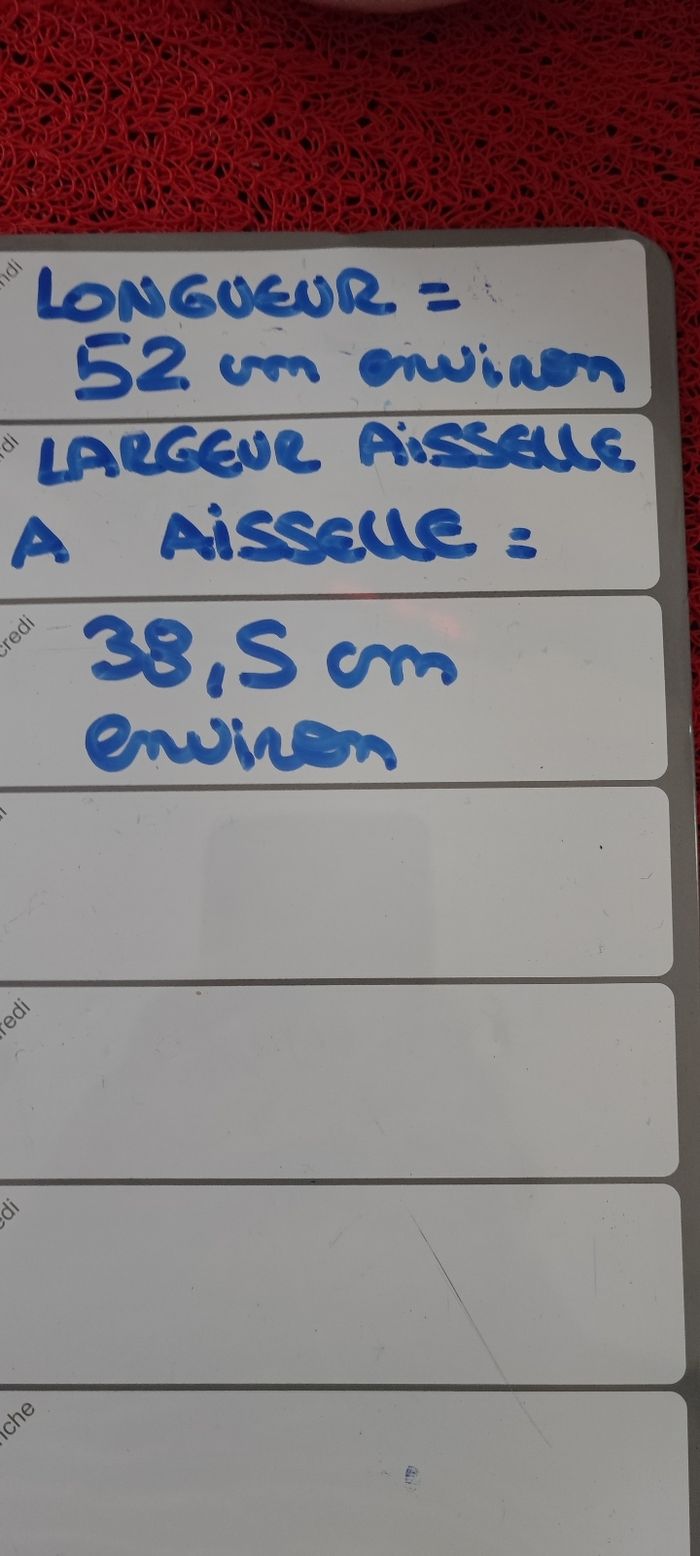 ndi
LONGUEUR =
52 cm environ
rdi
LARGEUR AISSELLE
A AISSELLE =
credi
38,5 cm
environ
di
redi
edi
nche